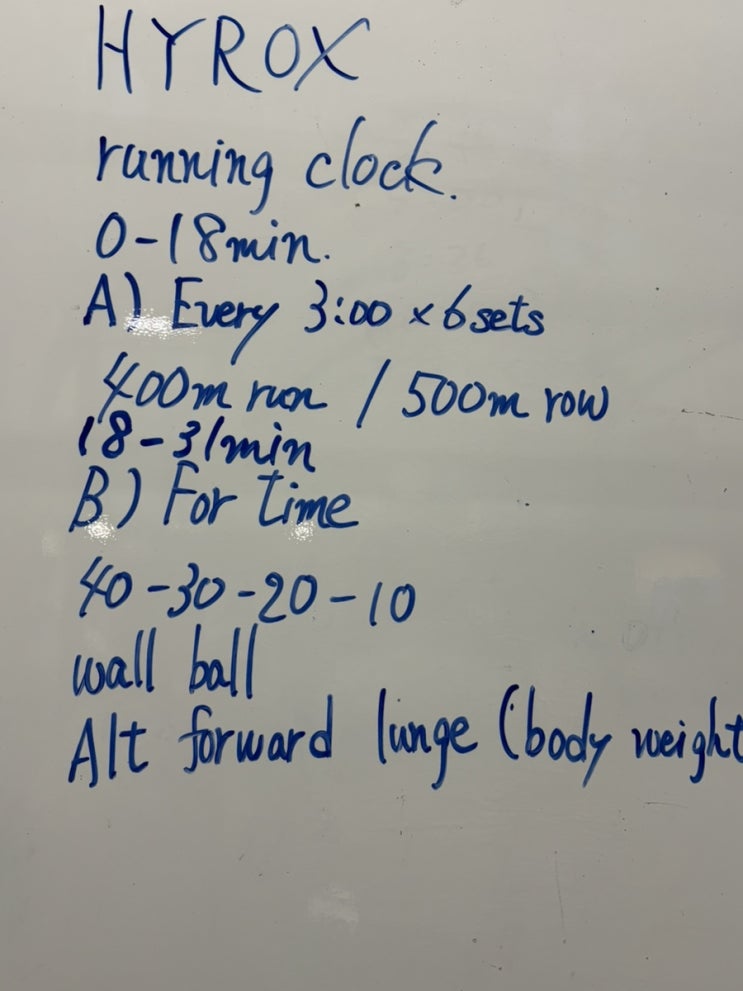 HYROX
running clock.
0-18min.
A) Every 3:00 × 6 sets
400m run / 500m row
18-31min
B) For time
40-30-20-10
wall ball
Alt forward lunge (body weight